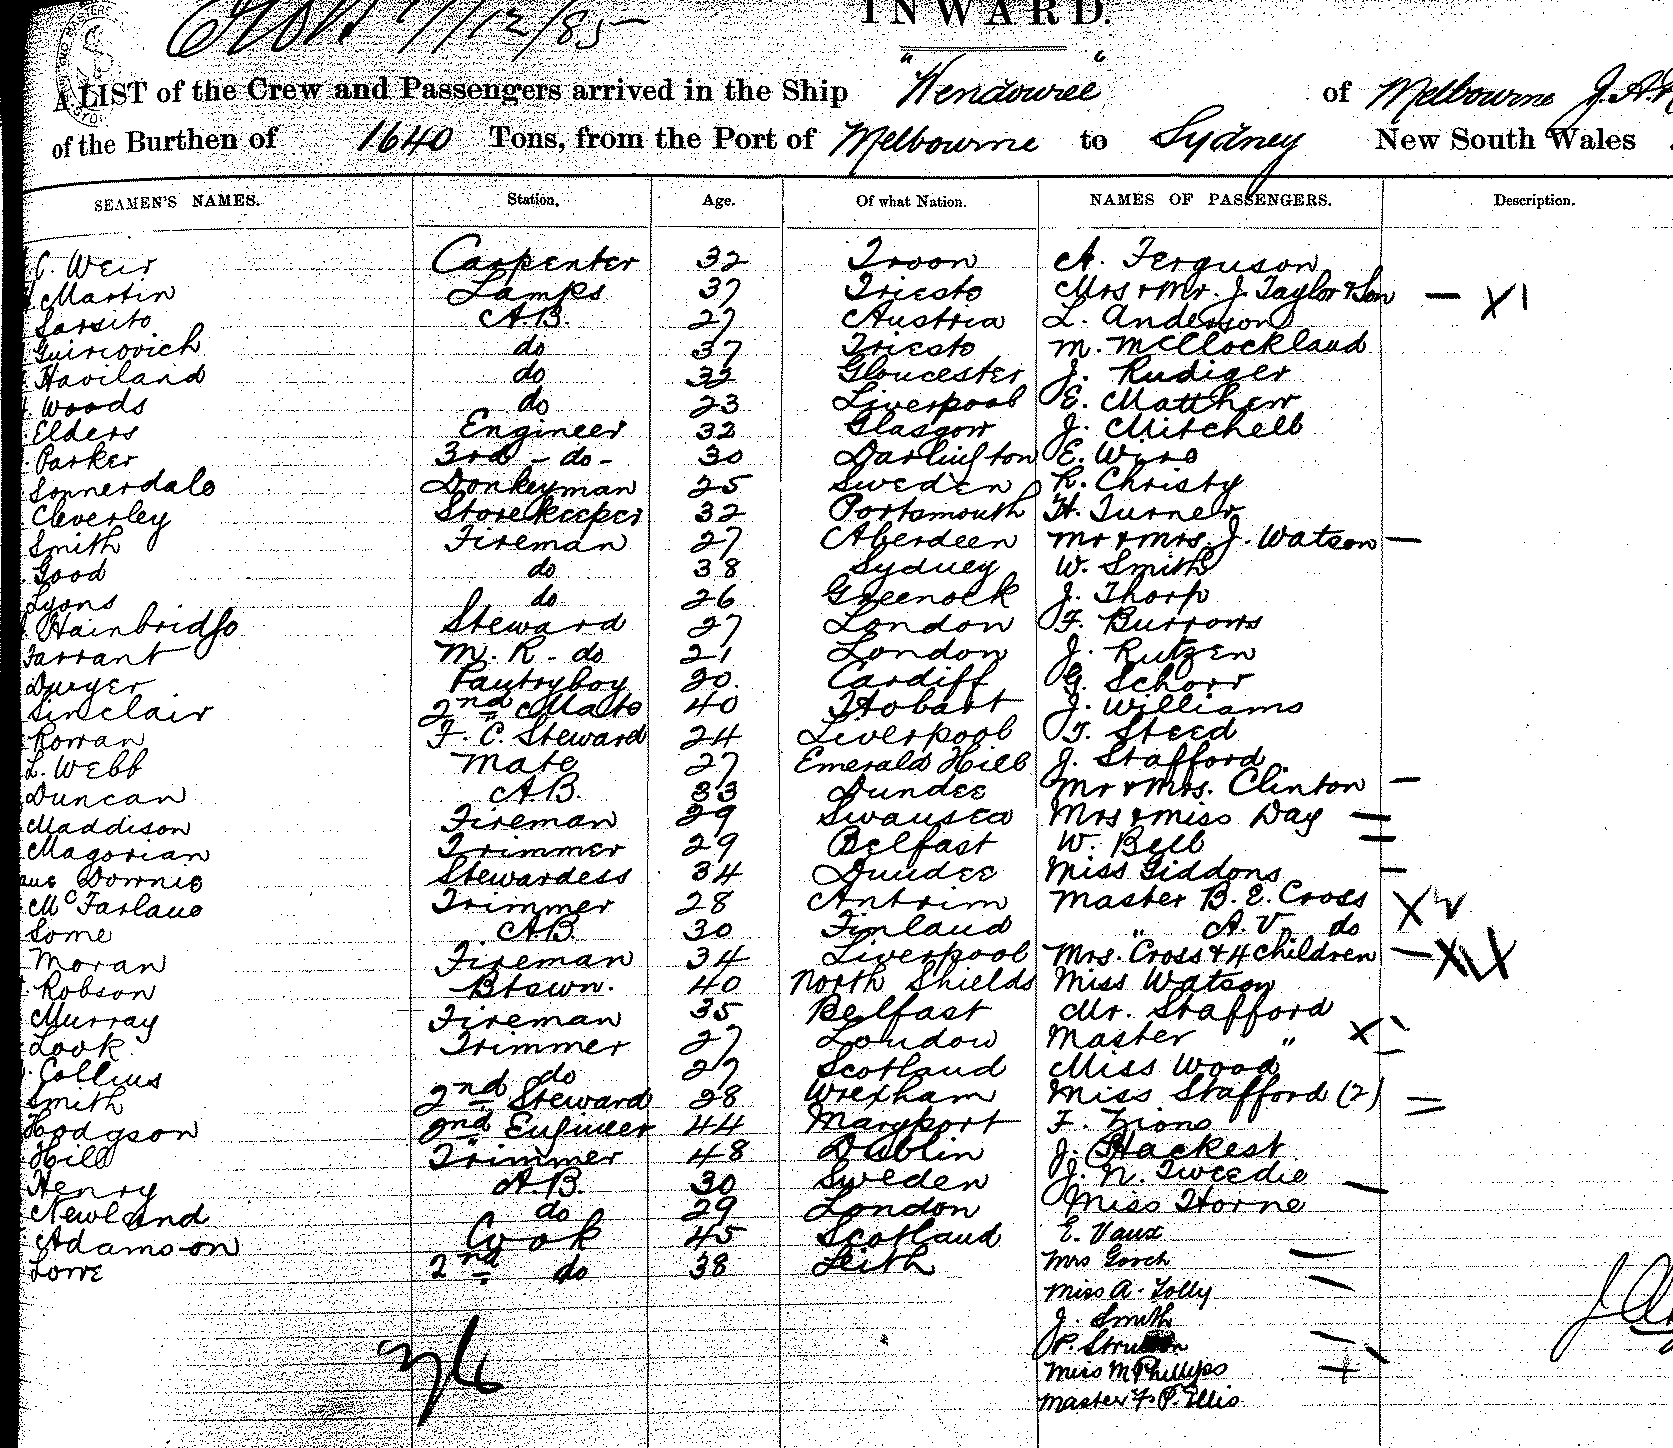 7/12/85
INWARD.
A LIST of the Crew and Passengers arrived in the Ship "Wendouree" of Melbourne J. A.
of the Burthen of 1640 Tons, from the Port of Melbourne to Sydney New South Wales
SEAMEN'S NAMES. Station. Age. Of what Nation. NAMES OF PASSENGERS. Description.
C. Weir Carpenter 32 Troon A. Ferguson
Martin Lamps 37 Triesto Mrs & Mr. J. Taylor & Son — X1
Sarsito A.B. 27 Austria L. Anderson
Guircovich do 37 Triesto M. McClockland
Haviland do 33 Gloucester J. Rudiger
Woods do 23 Liverpool E. Matthew
Elders Engineer 32 Glasgow J. Mitchell
Parker 3rd - do - 30 Darlington E. Wire
Sonnerdale Donkeyman 25 Sweden R. Christy
Cleverley Storekeeper 32 Portsmouth H. Turner
Smith Fireman 27 Aberdeen Mr & Mrs. J. Watson —
Good do 38 Sydney W. Smith
Lyons do 26 Greenock J. Thorp
Hainbridge Steward 27 London F. Burrows
Farrant M. R. do 21 London J. Rutzen
Dwyer Pantryboy 20. Cardiff G. Schorr
Sinclair 2nd Mate 40 Hobart J. Williams
Rowan F. C. Steward 24 Liverpool F. Steed
L. Webb Mate 27 Emerald Hill J. Stafford
Duncan A.B. 33 Dundee Mr & Mrs. Clinton —
Maddison Fireman 29 Swansea Mrs & Miss Day —
Magorian Trimmer 29 Belfast W. Bell
Downie Stewardess 34 Dundee Miss Giddons —
McFarlane Trimmer 28 Antrim Master B. E. Cross X
Some A.B. 30 Finland " A. V. do
Moran Fireman 34 Liverpool Mrs. Cross & 4 children —
Robson Btswn. 40 North Shields Miss Watson
Murray Fireman 35 Belfast Mr. Stafford
Look Trimmer 27 London Master " X
Collins do 27 Scotland Miss Wood
Smith 2nd Steward 28 Wrexham Miss Stafford (2) =
Hodgson 2nd Engineer 44 Maryport F. Zions
Hill Trimmer 48 Dublin J. Hackest
Henry A.B. 30 Sweden J. N. Tweedie
Newland do 29 London Miss Horne —
Adamson Cook 45 Scotland E. Vaux
Lowe 2nd do 38 Leith Mrs Gorch —
Miss A. Tolly —
J. Smith
P.
Miss M Phillips
Master F. P. Ellis